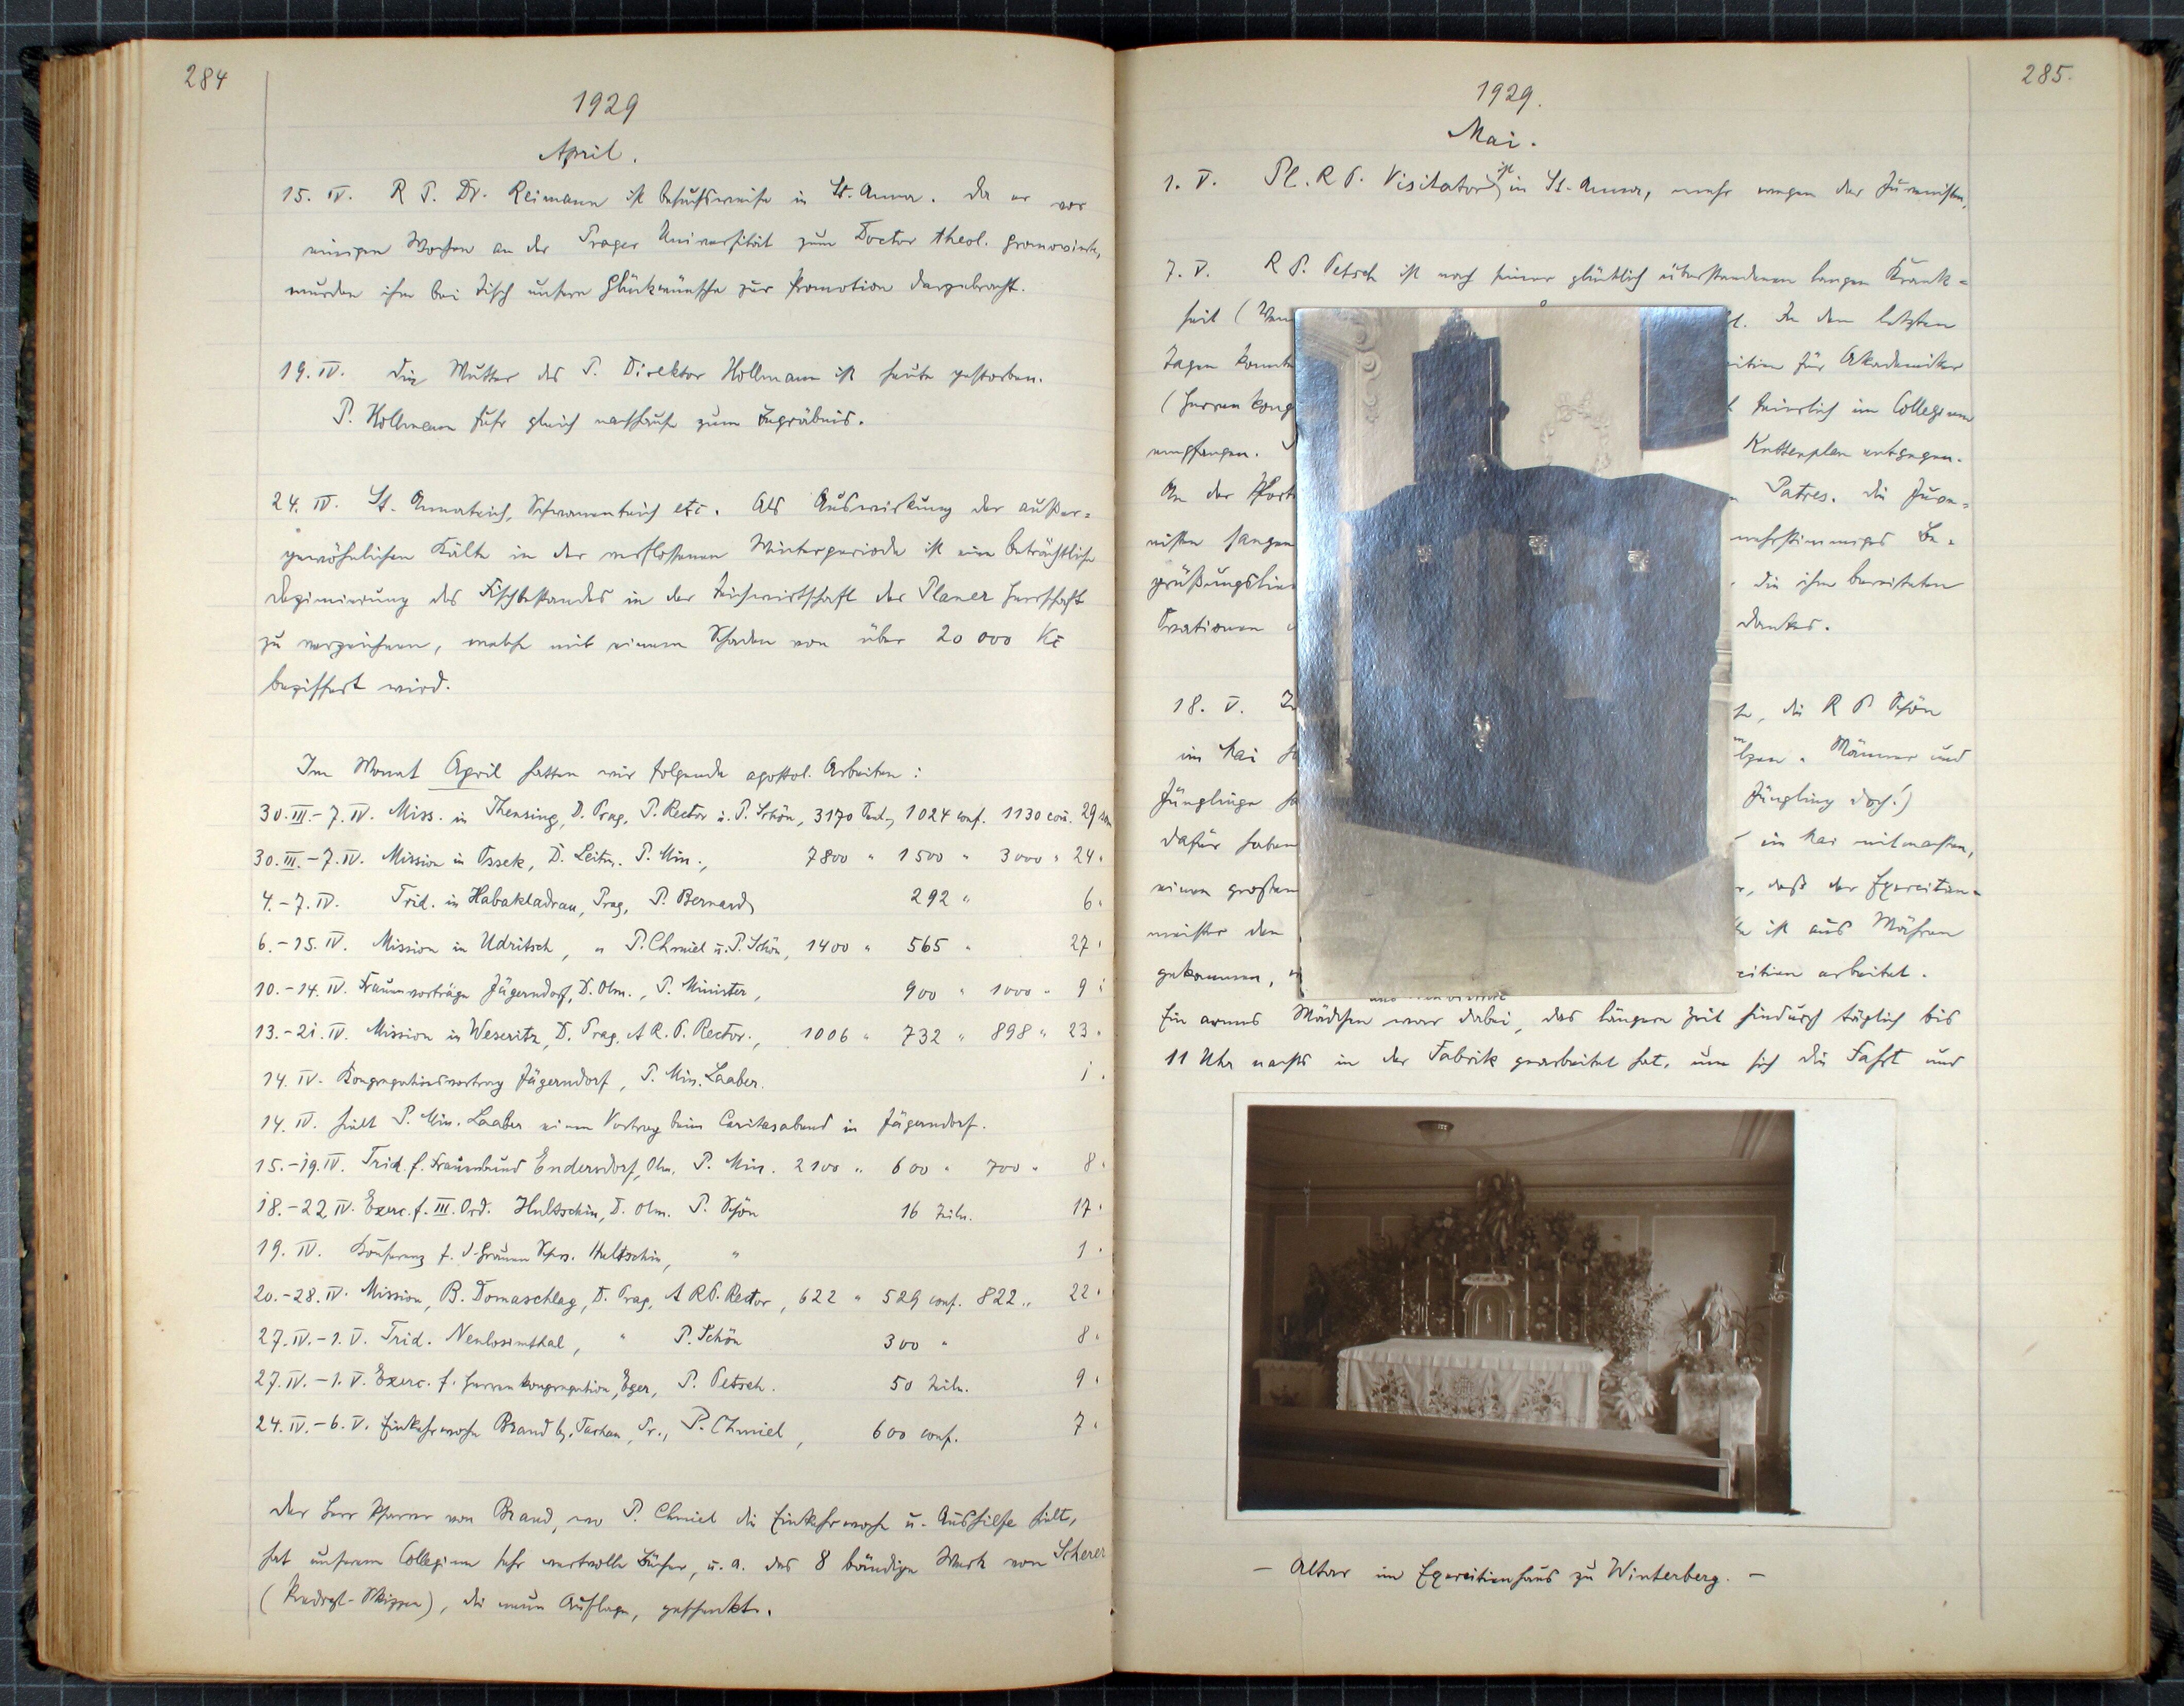 284
1929
April.
15. IV. R P. Dr. Reimann ist besuchsweise in St. Anna. Da er vor
einigen Wochen an der Prager Universität zum Doctor theol. promovierte,
wurden ihm bei Tisch unsere Glückwünsche zur Promotion dargebracht.
19. IV. Die Mutter des P. Direktor Hollmann ist heute gestorben.
P. Hollmann fuhr gleich nachhause zum Begräbnis.
24. IV. St. Annateich, Schwanenteich etc. Als Auswirkung der außer=
gewöhnlichen Kälte in der verflossenen Winterperiode ist eine beträchtliche
Dezimierung des Fischbestandes in der Teichwirtschaft der Planer Herrschaft
zu verzeichnen, welche mit einem Schaden von über 20 000 Kč
beziffert wird.
Im Monat April hatten wir folgende apostol. Arbeiten:
30. III.-7. IV. Miss. in Thensing, D. Prag, P. Rector u. P. Schön, 3170 1024 conf. 1130 com. 29
30. III.-7. IV. Mission in Ossek, D. Leitm. P. Min., 7800 " 1500 " 3000 " 24 "
4.-7. IV. Trid. in Habakladrau, Prag, P. Bernard 292 " 6 "
6.-15. IV. Mission in Udritsch, " P. Chmiel u. P. Schön, 1400 " 565 " 27 "
10.-14. IV. Frauenvorträge Jägerndorf, D. Olm., P. Minister, 900 " 1000 " 9 "
13.-21. IV. Mission in Weseritz, D. Prag, A R. P. Rector., 1006 " 732 " 898 " 23 "
14. IV. Kongregationsvortrag Jägerndorf, P. Min. Laaber. 1 "
14. IV. hielt P. Min. Laaber einen Vortrag beim Caritasabend in Jägerndorf.
15.-19. IV. Trid. f. Frauenbund Endersdorf, Olm. P. Min. 2100 " 600 " 700 " 8 "
18.-22 IV. Exerc. f. III. Ord. Hultschin, D. Olm. P. Schön 16 Teiln. 17 "
19. IV. Konferenz f. d. Grauen Schw. Hultschin, " 1 "
20.-28. IV. Mission, B. Domaschlag, D. Prag, A R P. Rector, 622 " 529 conf. 822 " 22 "
27. IV.-1. V. Trid. Neulosimthal, " P. Schön 300 " 8 "
27. IV.-1. V. Exerc. f. Herrenkongregation, Eger, P. Petsch. 50 Teiln. 9 "
24. IV.-6. V. Einkehrwoche Brand b. Tachau, Pr., P. Chmiel, 600 conf. 7 "
Der Herr Pfarrer von Brand, wo P. Chmiel die Einkehrwoche u. Aushilfe hielt,
hat unserem Collegium sehr wertvolle Bücher, u. a. das 8 bändige Werk von Scherer
(Predigt-Skizzen), die neue Auflage, geschenkt.
285.
1929.
Mai.
1. V. Pl. R P. Visitator ist in St. Anna, mehr wegen der Juvenisten.
7. V. R P. Petsch ist nach seiner glücklich überstandenen langen Krank=
heit ( In den letzten
Tagen konnte für Akademiker
(Herren feierlich im Collegium
empfangen. Kuttenplan entgegen.
An der Patres. Die Juve=
nisten sangen mehrstimmiges Be=
grüßungslied die ihm bereiteten
Ovationen dankte.
18. V. die R P. Schön
im Mai Männer und
Jünglinge Jüngling doch!)
dafür haben im Mai mitmachten,
einen großen daß der Exercitien=
meister den ist aus Mähren
gekommen, arbeitet.
Ein armes Mädchen war dabei, das längere Zeit hindurch täglich bis
11 Uhr nachts in der Fabrik gearbeitet hat, um sich die Fahrt und
- Altar im Exercitienhaus zu Winterberg. -